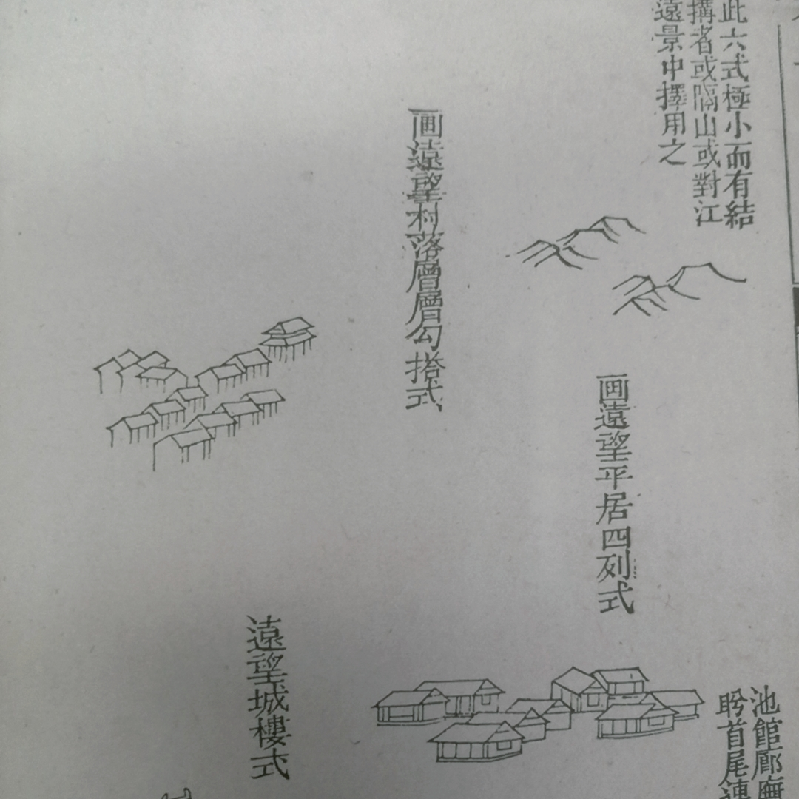 此六式極小而有結
搆者或隔山或對江
遠景中擇用之
画遠望村落層層勾搭式
画遠望平居四列式
遠望城樓式
池館廊廡
盻首尾連